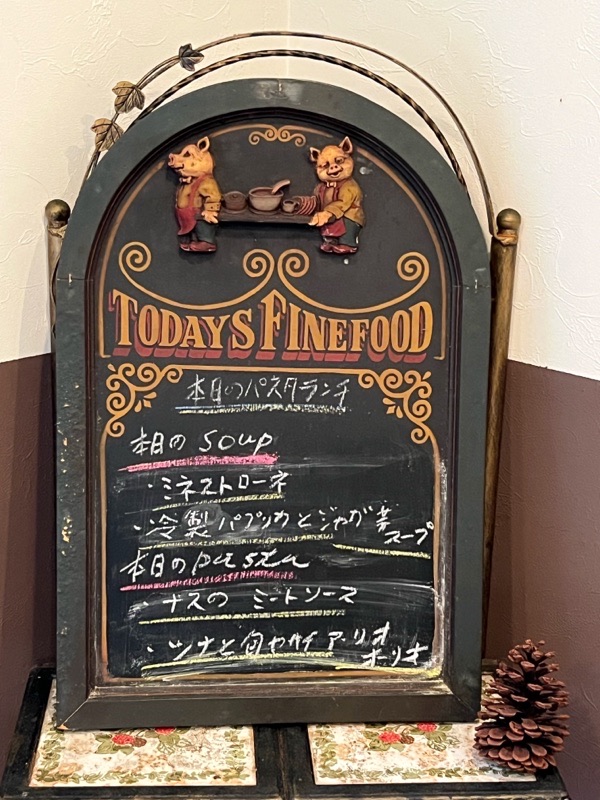 TODAY'S FINEFOOD
本日のパスタランチ
本日の soup
・ミネストローネ
・冷製パプリカとジャガ芋
スープ
本日の pasta
・ナスの ミートソース
・ツナと旬ヤサイ アーリオ
オーリオ